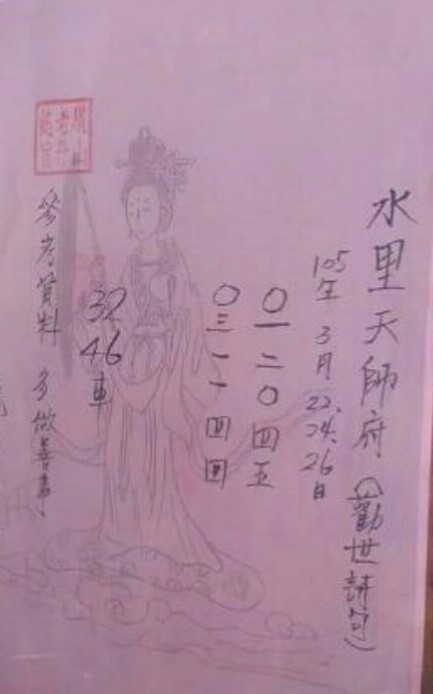 水里天師府(勸世詩句)
105年 3月 22.24.26日
〇一二〇四五
〇三一一四四
32
46
車
參考資料 多做善事